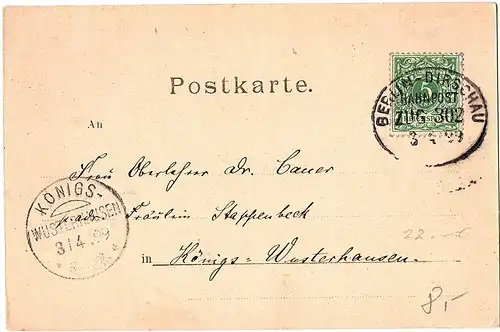 Postkarte.
5
BERLIN-DIRSCHAU
BAHNPOST
ZUG 302
3 4 99
An
Frau Oberlehrer Dr. Cauer
Fräulein Stappenbeck
in Königs-Wusterhausen.
KÖNIGS-
WUSTERHAUSEN
3/4.99
22.-€
8,-